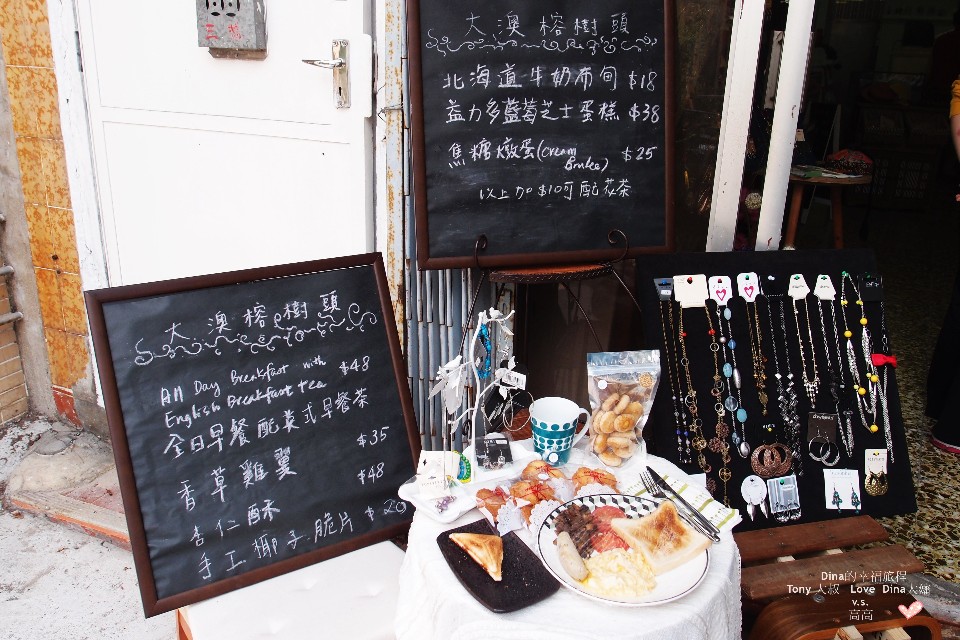 大澳榕樹頭
北海道牛奶布甸 $18
益力多藍莓芝士蛋糕 $38
焦糖燉蛋(Cream
Brulee) $25
以上加$10可配花茶
大澳榕樹頭
All Day Breakfast with $48
English Breakfast tea
全日早餐配英式早餐茶
香草雞翼 $35
杏仁酥 $48
手工椰子脆片 $20
Dina的幸福旅程
Tony大叔 Love Dina大嬸
v.s.
高高